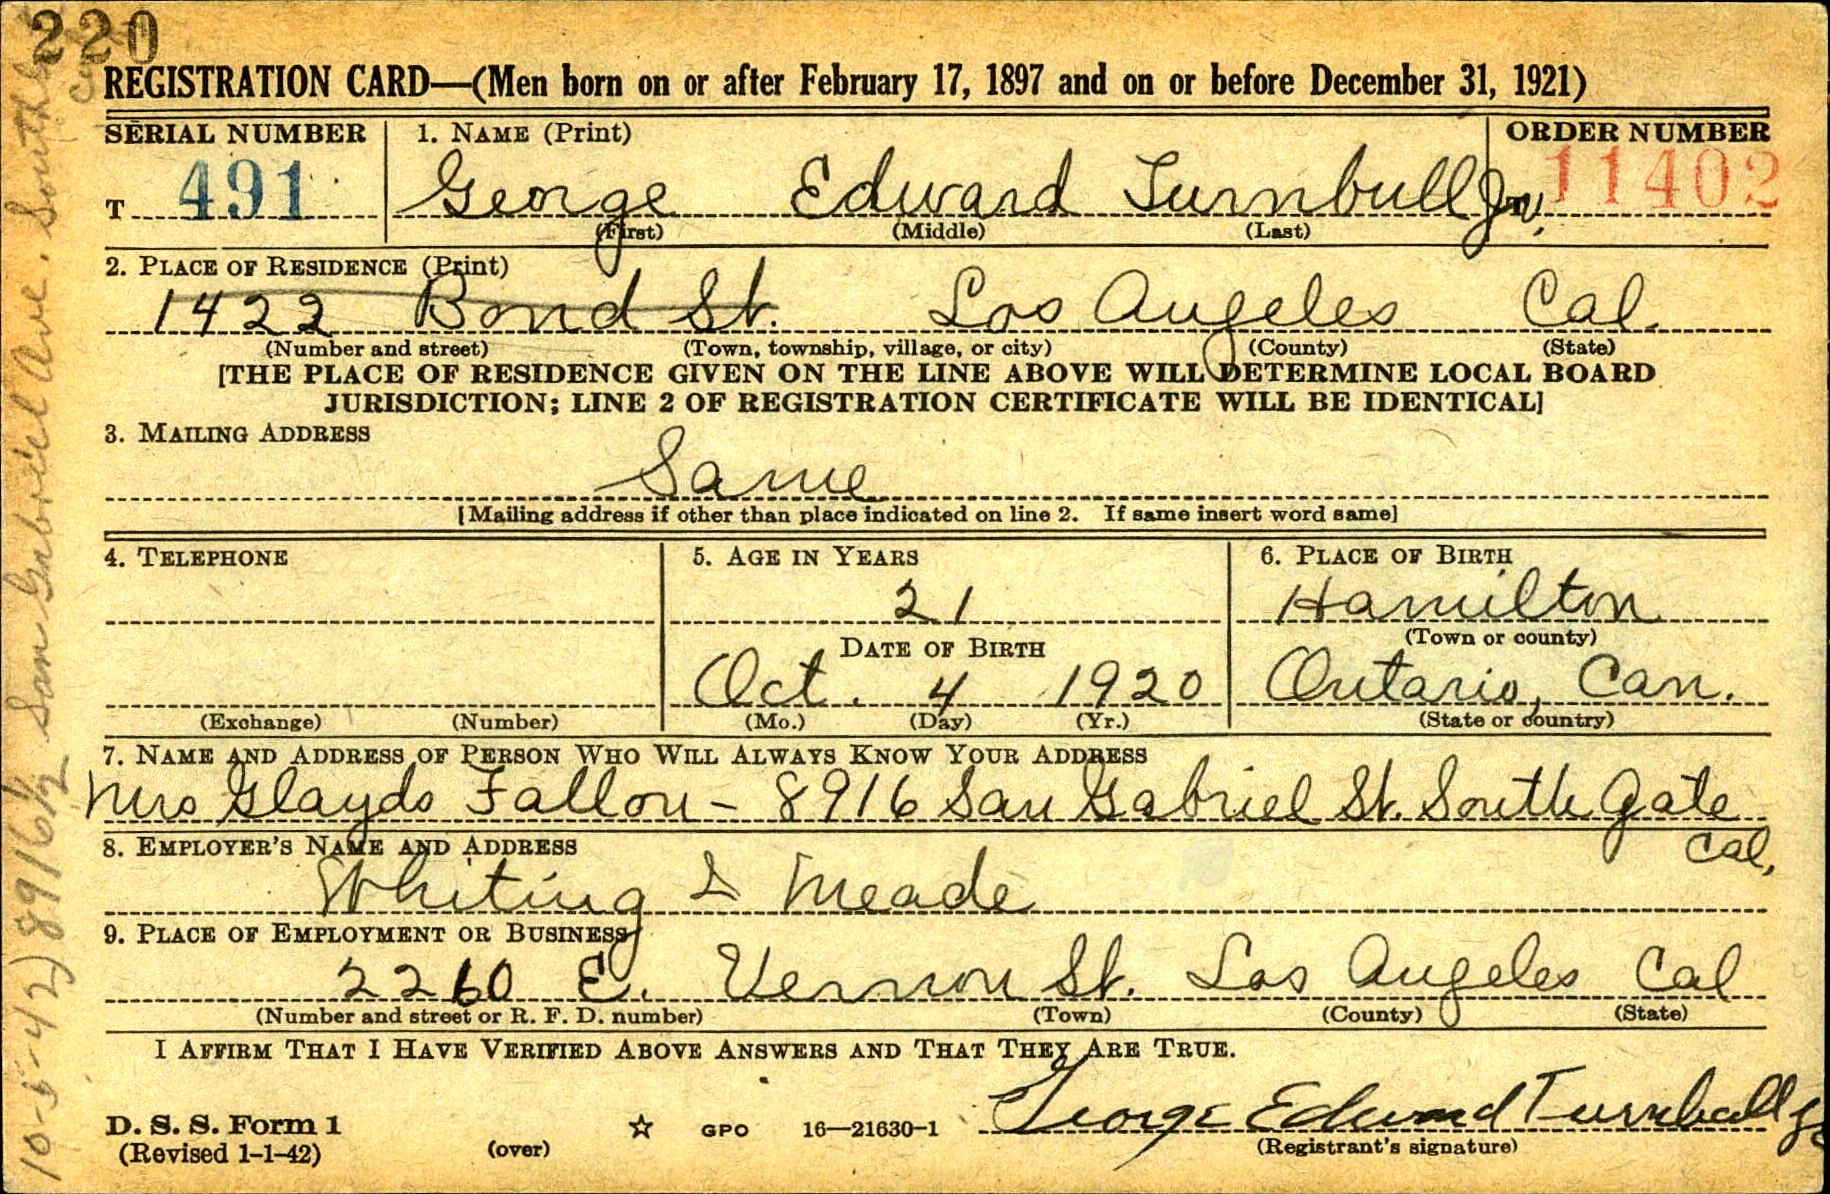 220
REGISTRATION CARD—(Men born on or after February 17, 1897 and on or before December 31, 1921)
SERIAL NUMBER 1. NAME (Print) ORDER NUMBER
T 491 George Edward Turnbull Jr. 11402
(First) (Middle) (Last)
2. PLACE OF RESIDENCE (Print)
1422 Bond St. Los Angeles Cal.
(Number and street) (Town, township, village, or city) (County) (State)
[THE PLACE OF RESIDENCE GIVEN ON THE LINE ABOVE WILL DETERMINE LOCAL BOARD
JURISDICTION; LINE 2 OF REGISTRATION CERTIFICATE WILL BE IDENTICAL]
3. MAILING ADDRESS
Same
[Mailing address if other than place indicated on line 2. If same insert word same]
4. TELEPHONE 5. AGE IN YEARS 6. PLACE OF BIRTH
21 Hamilton
DATE OF BIRTH (Town or county)
Oct. 4 1920 Ontario, Can.
(Exchange) (Number) (Mo.) (Day) (Yr.) (State or country)
7. NAME AND ADDRESS OF PERSON WHO WILL ALWAYS KNOW YOUR ADDRESS
Mrs Glayds Fallon - 8916 San Gabriel St. South Gate
Cal.
8. EMPLOYER'S NAME AND ADDRESS
Whiting & Meade
9. PLACE OF EMPLOYMENT OR BUSINESS
2260 E. Vernon St. Los Angeles Cal
(Number and street or R. F. D. number) (Town) (County) (State)
I AFFIRM THAT I HAVE VERIFIED ABOVE ANSWERS AND THAT THEY ARE TRUE.
George Edward Turnbull Jr
D. S. S. Form 1 GPO 16—21630-1 (Registrant's signature)
(Revised 1-1-42) (over)
10-5-42) 8916½ San Gabriel Ave. South